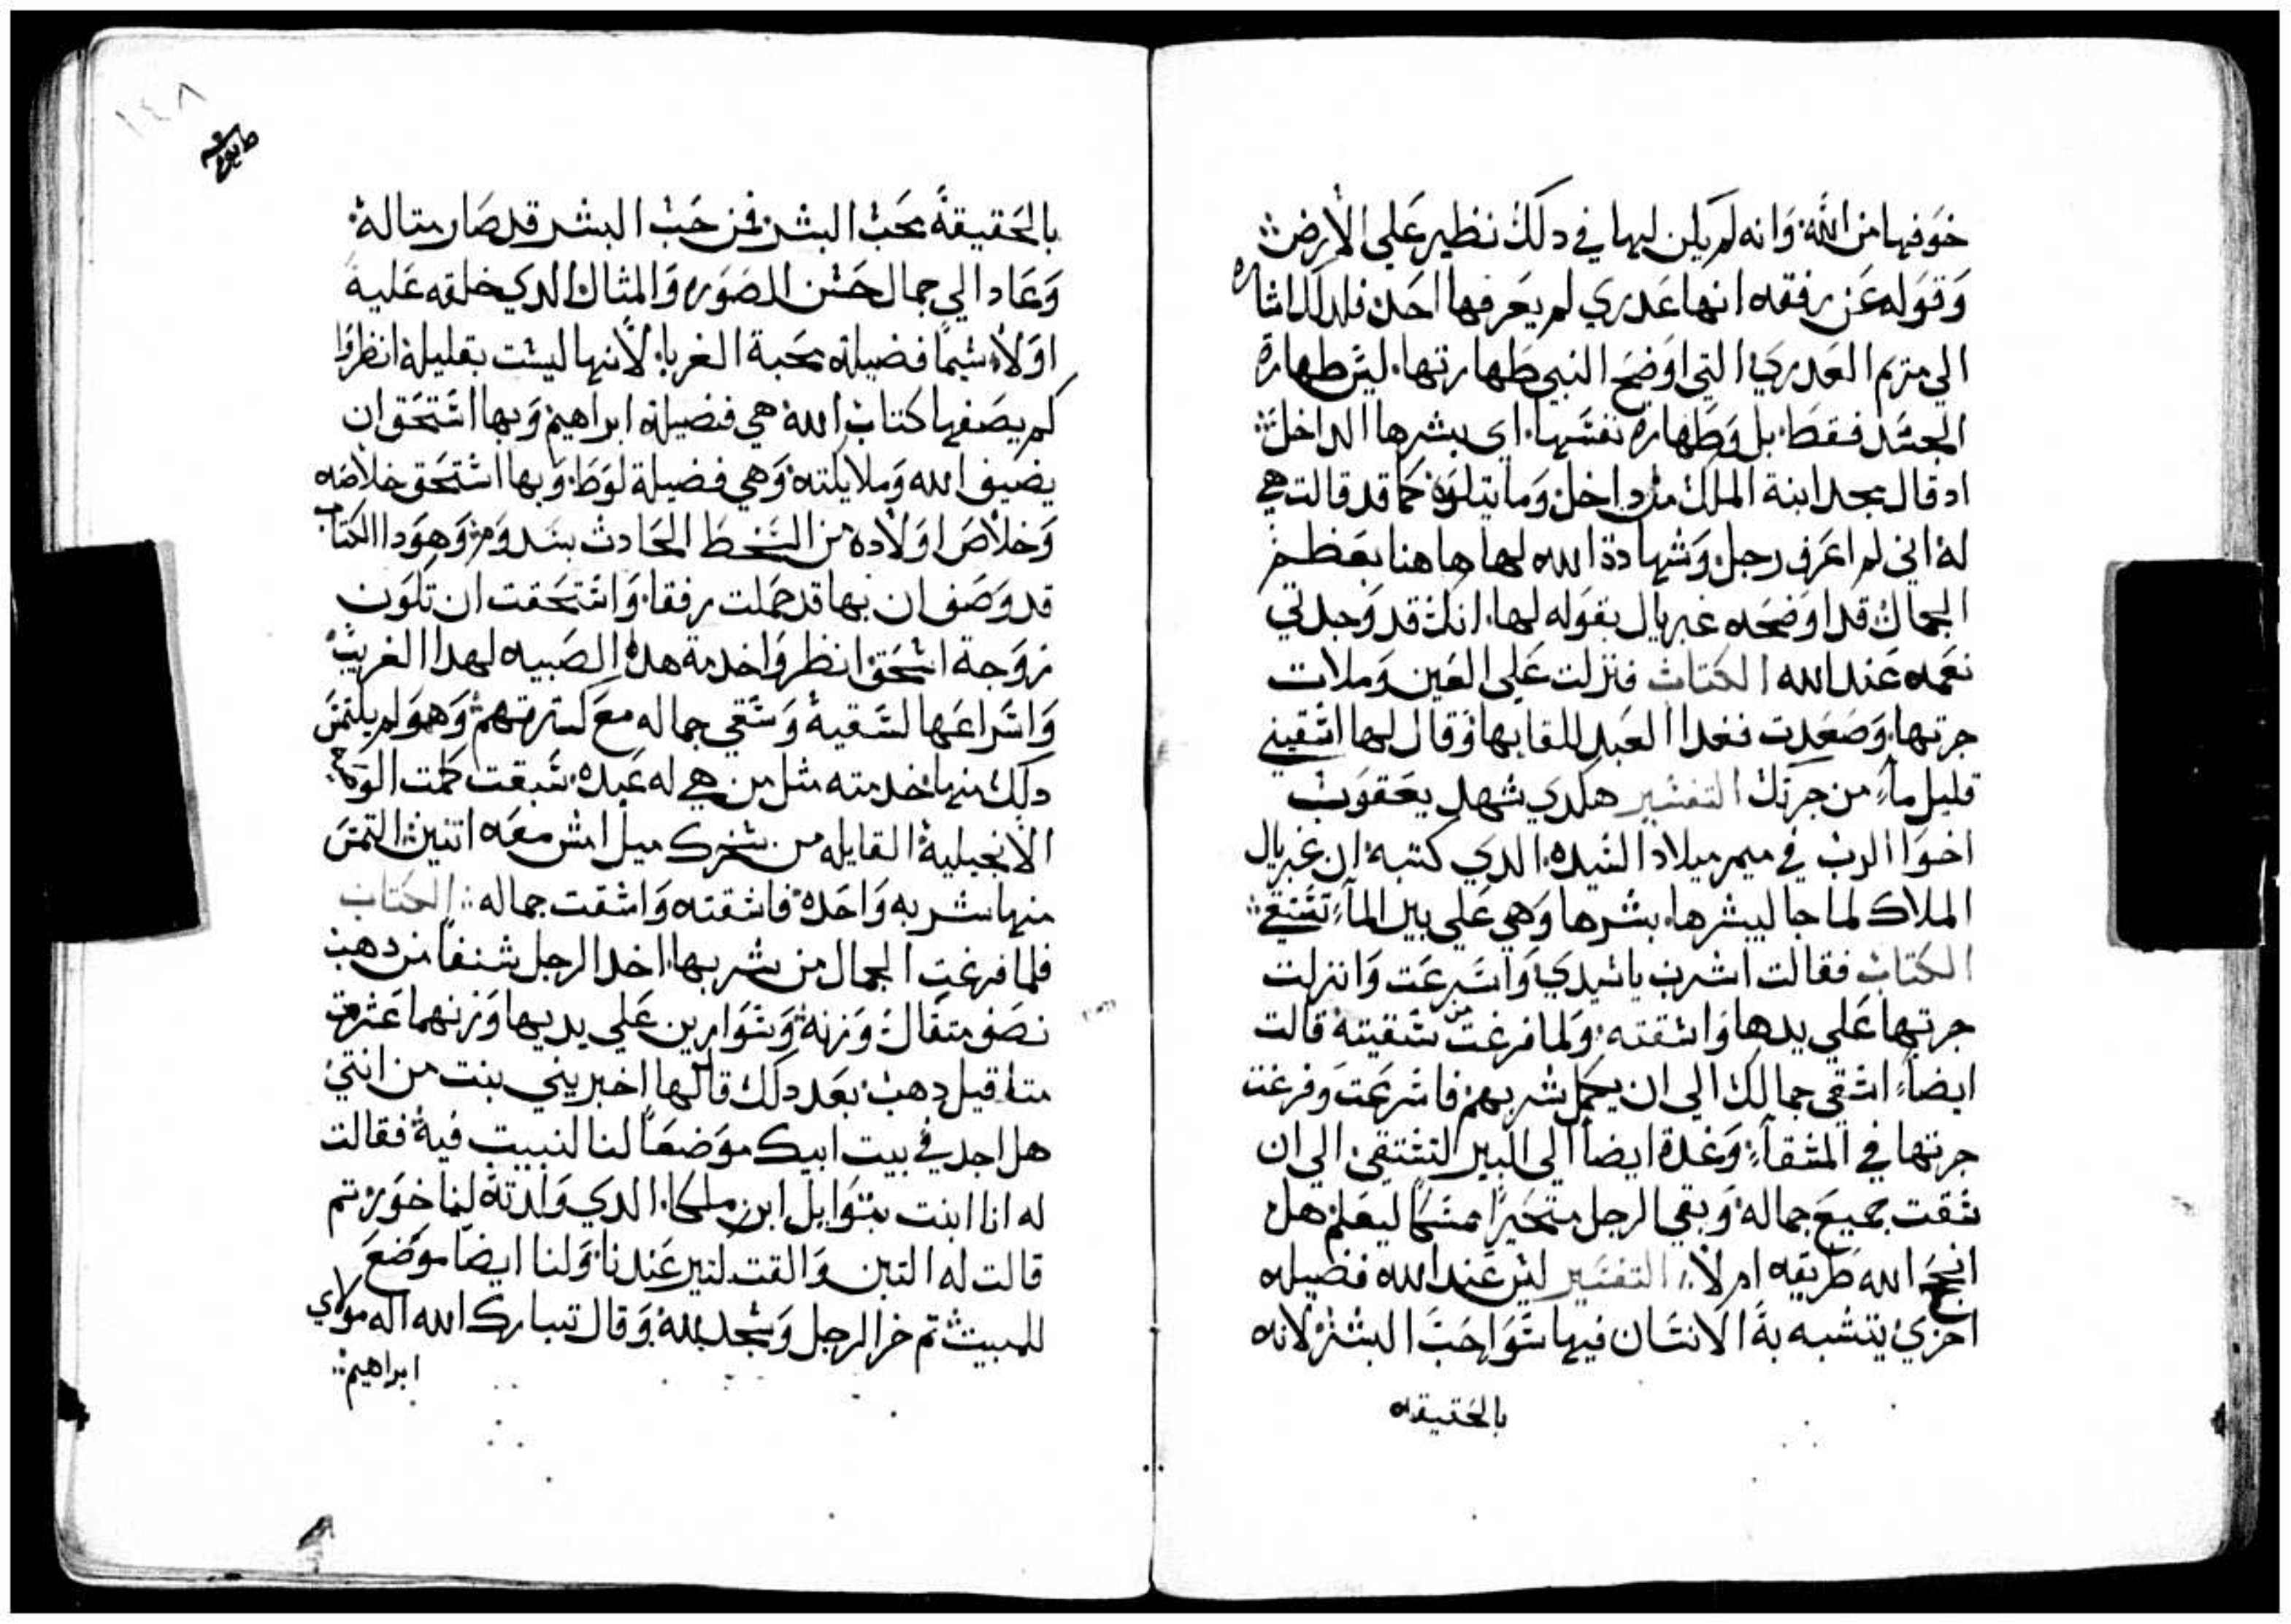 خوفها من الله وانه لم يكن ليها في دلك نظير علي الارض
وقوله عن رفقه انها عدري لم يعرفها احد فلدلك اشاره
الي مريم العدري التي اوضح النبي طهارتها. ليس طهارة
الجسد فقط بل وطهارة نفسها. اي بشرها الداخل
اد قال مجد ابنة الملك من داخل وما يتلوه كما قد قالت هي
له اني لم اعرف رجل وشهادة الله لها هاهنا بعظم
الجمال قد اوضحه غبريال بقوله لها. انك قد وجدتي
نعمه عند الله الكتاب فنزلت علي العين وملات
جرتها وصعدت فغدا العبد للقايها وقال لها اسقيني
قليل ماء من جرتك التفسير هكدي شهد يعقوب
اخوا الرب في ميمر ميلاد السيده الدي كتبه ان غبريال
الملاك لما جا ليبشرها. بشرها وهي علي بير الماء تستقي
الكتاب فقالت اشرب يا سيدي واسرعت وانزلت
جرتها علي يدها واسقته ولما فرغت من سقيته قالت
ايضاً اسقي جمالك الي ان يكمل شربهم فاسرعت وفرغت
جرتها في المسقاء وغدة ايضاً الي البير لتستقي الي ان
سقت جميع جماله وبقي الرجل متحيراً ممسكا ليعلم هل
انجح الله طريقه ام لا التفسير ليس عند الله فضيله
اخري يتشبه به الانسان فيها سوا حب البشر لانه
بالحقيقه
١٤٨
بالحقيقة محب البشر فمن حب البشر قد صار متاله
وعاد الي جمال حسن الصوره والمثال الدي خلقه عليه
اولا. سيما فضيلة محبة الغربا. لانها ليست بقليلة انظروا
كم يصفها كتاب الله هي فضيلة ابراهيم وبها استحق ان
يضيف الله وملايكته وهي فضيلة لوط وبها استحق خلاصه
وخلاص اولاده من السخط الحادث بسدوم وهودا الكتاب
قد وصف ان بها قد كملت رفقا واستحقت ان تكون
زوجة اسحق انظروا خدمة هده الصبيه لهدا الغريب
واسراعها لسقيه وسقي جماله مع كثرتهم وهو لم يلتمس
دلك منها خدمته مثل من هي له عبده. سبقت كملت الوصية
الانجيلية القايله من سخرك ميل امش معه اتنين التمس
منها شربه واحده فاسقته واسقت جماله الكتاب
فلما فرغت الجمال من شربها. اخد الرجل شنفاً من دهب
نصف متقال وزنه وسوارين علي يديها وزنهما عشرة
متاقيل دهب بعد دلك قال لها اخبريني بنت من انتي
هل اجد في بيت ابيك موضعاً لنا لنبيت فيه فقالت
له انا ابنت بتوايل ابن ملكا. الدي ولدته لناخور تم
قالت له التبن والقت لتير عندنا ولنا ايضا موضع
للمبيت تم خر الرجل وسجد لله وقال تبارك الله اله مولاي
ابراهيم